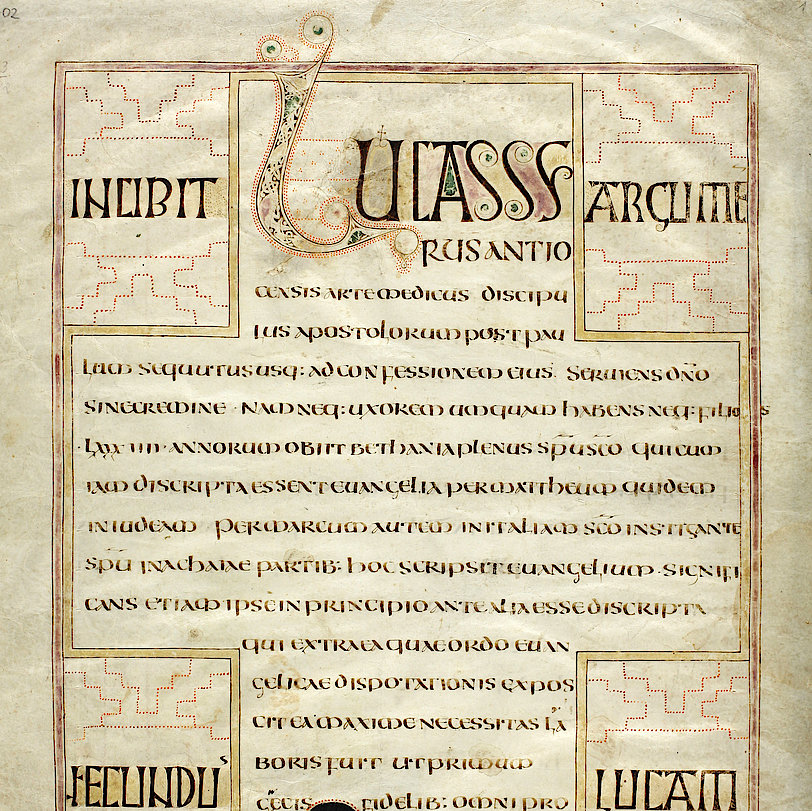 02
INCIPIT
ARGUME
LUCAS SY
RUS ANTIO
CENSIS ARTE MEDICUS DISCIPU
LUS APOSTOLORUM POST PAU
LUM SEQUUTUS USQ: AD CONFESSIONEM EIUS SERUIENS DNO
SINE CREMINE · NAM NEQ: UXOREM UMQUAM HABENS NEQ: FILIOS
LXX IIII · ANNORUM OBIIT BETHANIA PLENUS SPU SCO QUI CUM
IAM DISCRIPTA ESSENT EUANGELIA PER MATTHEUM QUIDEM
IN IUDEAM PER MARCUM AUTEM IN ITALIAM SCO INSTIGANTE
SPU IN ACHAIAE PARTIB: HOC SCRIPSIT EUANGELIUM · SIGNIFI
CANS ETIAM IPSE IN PRINCIPIO ANTE ALIA ESSE DISCRIPTA
QUI EXTRA EA QUAE ORDO EUAN
GELICAE DISPOTATIONIS EXPOS
CIT EA MAXIME NECESSITAS LA
BORIS FUIT UT PRIMUM
GRECIS FIDELIB: OMNI PRO
SECUNDUS
LUCAM